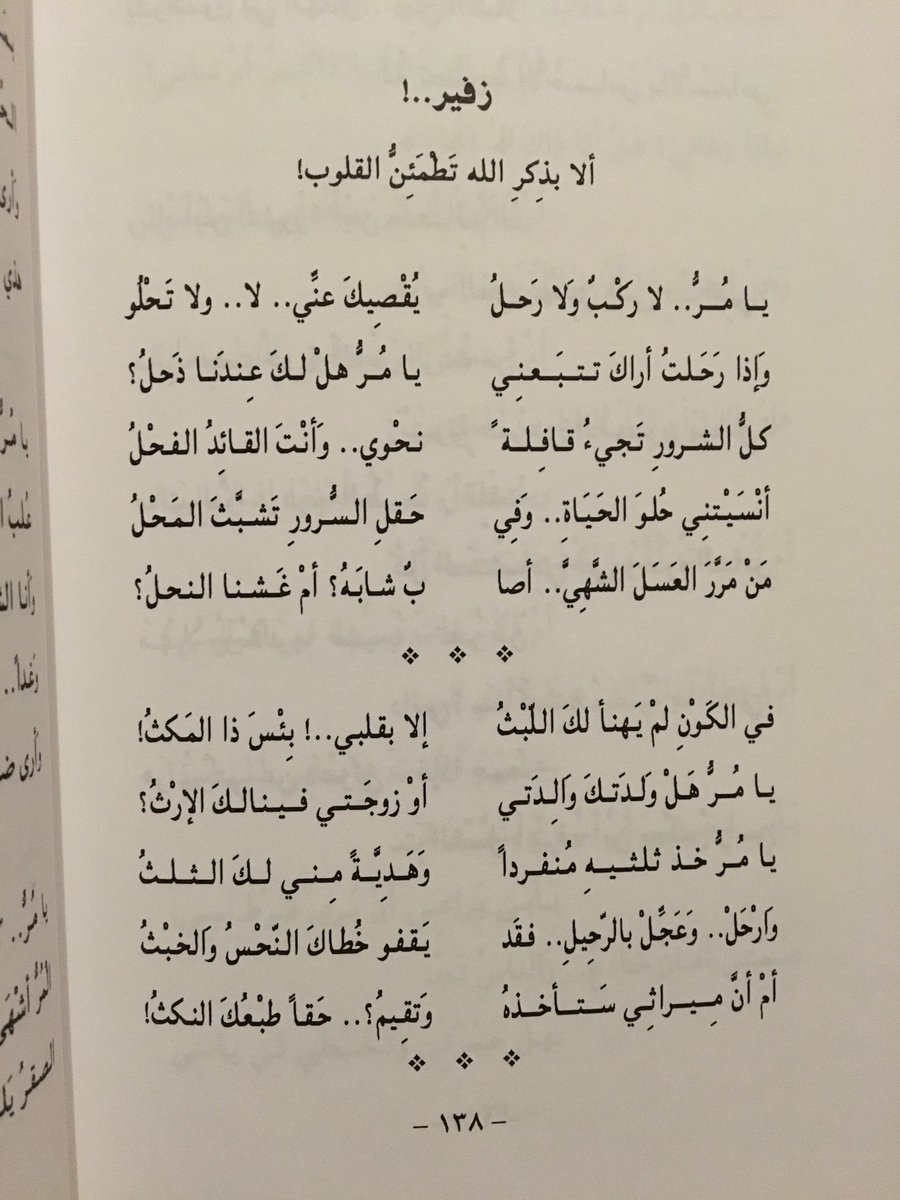 زفير..!
ألا بذِكرِ الله تَطْمَئِنُّ القلوب!
يا مُرُّ.. لا ركْبٌ وَلا رَحلُ يُقْصِيكَ عنِّي.. لا.. ولا تَحْلُو
وَإذا رَحَلتُ أراكَ تتبَعني يا مُرُّ هلْ لكَ عِندَنا ذَحلُ؟
كلُّ الشرورِ تَجيءُ قافِلةً نحْوي.. وَأنْتَ القائِدُ الفحْلُ
أنْسَيْتني حُلوَ الحَيَاةِ.. وَفي حَقلِ السُّرورِ تَشبَّثَ المَحْلُ
مَنْ مَرَّرَ العَسَلَ الشَّهِيَّ.. أصا بٌ شابَهُ؟ أمْ غَشنا النحلُ؟
في الكَوْنِ لمْ يَهنأ لكَ اللّبْثُ إلا بقلبي..! بِئْسَ ذا المَكثُ!
يا مُرُّ هَلْ وَلدَتكَ وَالِدَتي أوْ زوجَتي فينالكَ الإرْثُ؟
يا مُرُّ خذ ثلثيهِ مُنفرداً وَهَدِيَّةً مِني لكَ الثلثُ
وَارْحَلْ.. وَعَجِّلْ بالرّحِيلِ.. فقَد يَقفو خُطاكَ النّحْسُ وَالخبْثُ
أمْ أنَّ مِيراثِي سَتأخذهُ وَتقِيمُ؟.. حَقاً طبْعُكَ النكثُ!
– ١٣٨ –
يا مُرُّ
وَغداً..
هذي